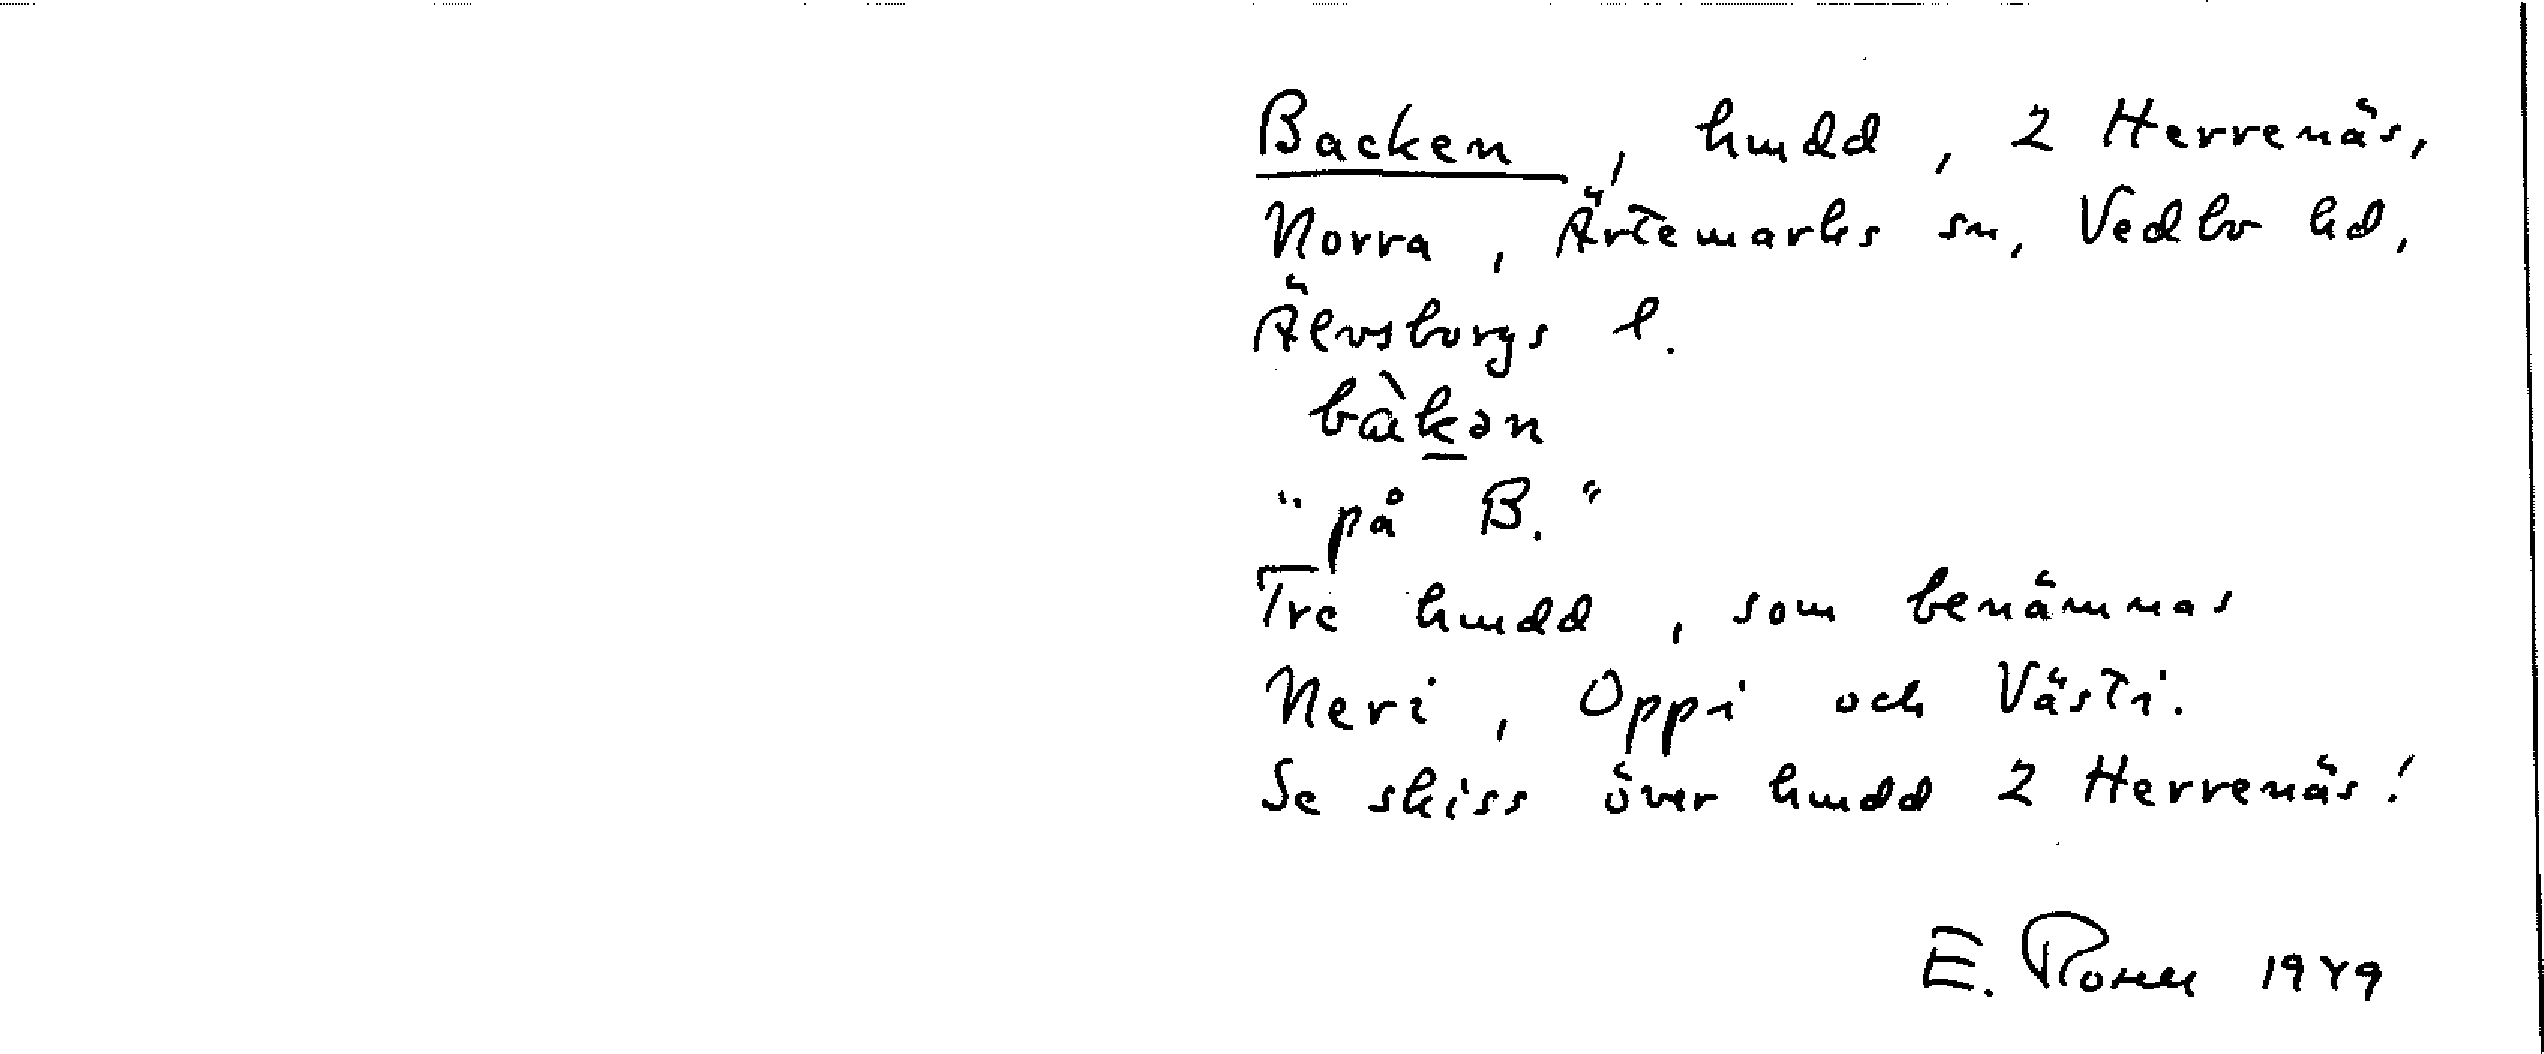 Backen, hmdd, 2 Herrenäs,
Norra, Ärtemarks sn, Vedbo hd,
Älvsborgs l.
bàkən
"på B."
Tre hmdd, som benämnas
Neri, Oppi och Västi.
Se skiss över hmdd 2 Herrenäs!
E. 1949